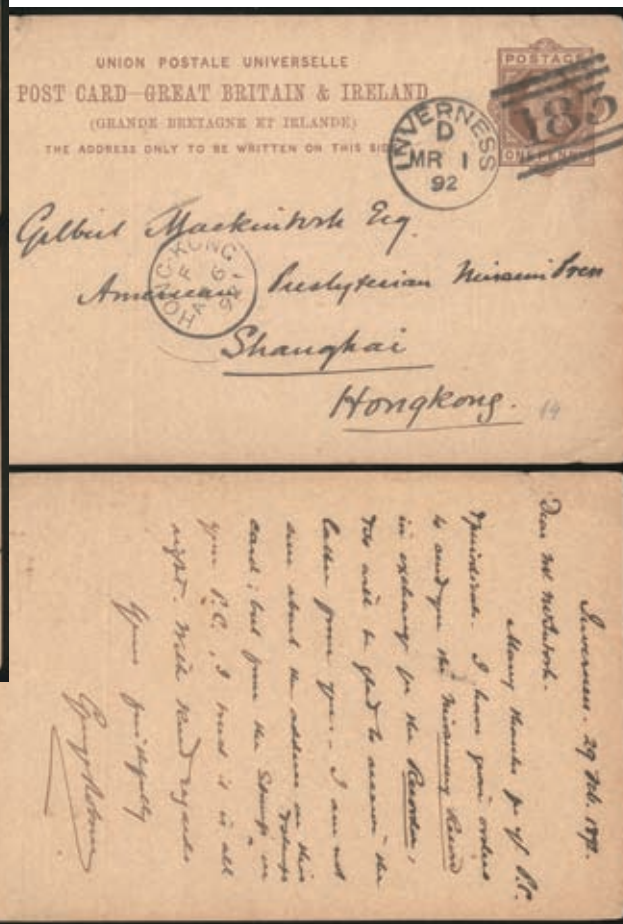 UNION POSTALE UNIVERSELLE
POST CARD-GREAT BRITAIN & IRELAND
(GRANDE BRETAGNE ET IRLANDE)
THE ADDRESS ONLY TO BE WRITTEN ON THIS SIDE
POSTAGE
ONE PENNY
183
INVERNESS
D
MR 1
92
Gilbert Mackintosh Esq.
American Presbyterian Mission Press
Shanghai
Hongkong.
HONG KONG
F
AP 6
92
14
Inverness. 29 Feb. 1892.
Dear Mr McIntosh.
Many thanks for yr P.C.
I have given orders
to send you the Missionary Record
in exchange for the Recorder;
& we will be glad to receive the
latter from you. I am not
sure about the address on this
card; but from the Stamps on
your P.C., I trust it is all
right. With kind regards
Yours faithfully